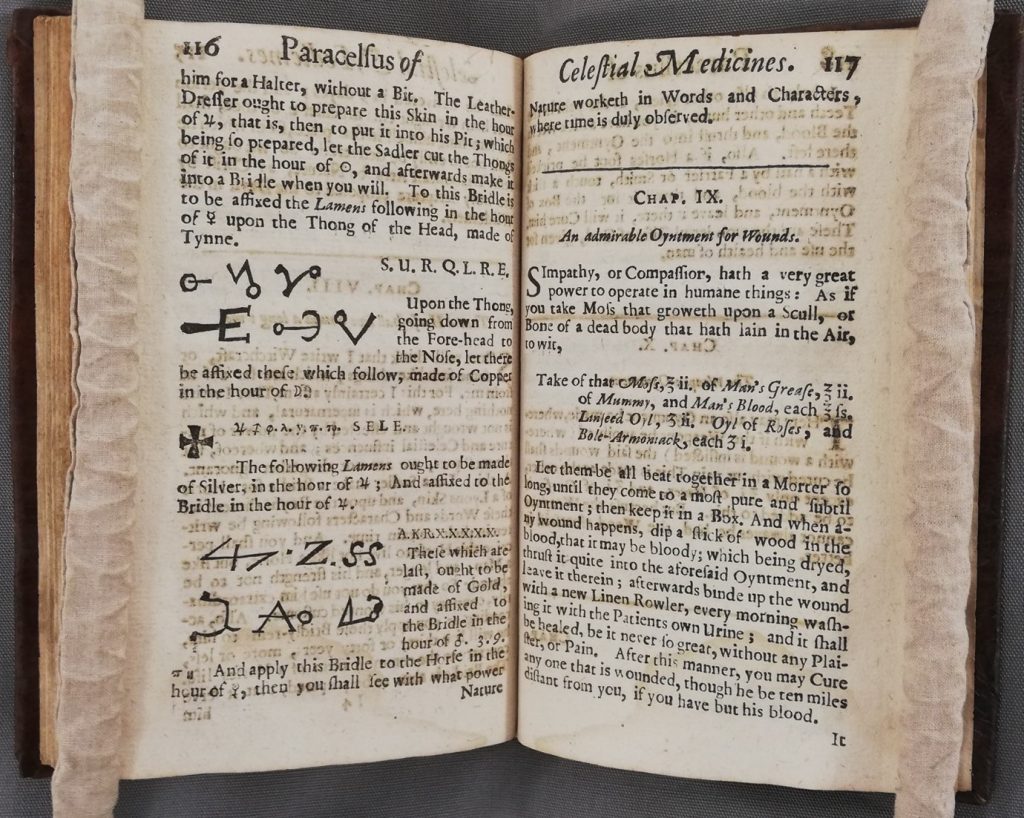 116 Paracelſus of
him for a Halter, without a Bit. The Leather-
Dreſſer ought to prepare this Skin in the hour
of ♃, that is, then to put it into his Pit; which
being ſo prepared, let the Sadler cut the Thongs
of it in the hour of ☉, and afterwards make it
into a Bridle when you will. To this Bridle is
to be affixed the Lamens following in the hour
of ☿ upon the Thong of the Head, made of
Tynne.
S. U. R. Q. L. R E.
Upon the Thong,
going down from
the Fore-head to
the Noſe, let there
be affixed theſe which follow, made of Copper
in the hour of
SELE.
The following Lamens ought to be made
of Silver, in the hour of ♃; And affixed to the
Bridle in the hour of ♃.
A. K R. X. X. X. X. X.
Theſe which are
laſt, ought to be
made of Gold,
and affixed to
the Bridle in the
hour of ♂. 3. 9.
And apply this Bridle to the Horſe in the
hour of, then you ſhall ſee with what power
Nature
Celeſtial Medicines. 117
Nature worketh in Words and Characters,
where time is duly obſerved.
CHAP. IX.
An admirable Oyntment for Wounds.
SImpathy, or Compaſſior, hath a very great
power to operate in humane things: As if
you take Moſs that groweth upon a Scull, or
Bone of a dead body that hath lain in the Air,
to wit,
Take of that Moſs, ℥ ii. of Man's Greaſe, ℥ ii.
of Mummy, and Man's Blood, each ℥ ſs.
Lanſeed Oyl, ℥ ii. Oyl of Roſes, and
Bole-Armoniack, each ℥ i.
Let them be all beat together in a Morter ſo
long, until they come to a moſt pure and ſubtil
Oyntment; then keep it in a Box. And when a-
ny wound happens, dip a ſtick of wood in the
blood, that it may be bloody; which being dryed,
thruſt it quite into the aforeſaid Oyntment, and
leave it therein; afterwards binde up the wound
with a new Linen Rowler, every morning waſh-
ing it with the Patients own Urine; and it ſhall
be healed, be it never ſo great, without any Plai-
ſter, or Pain. After this manner, you may Cure
any one that is wounded, though he be ten miles
diſtant from you, if you have but his blood.
It